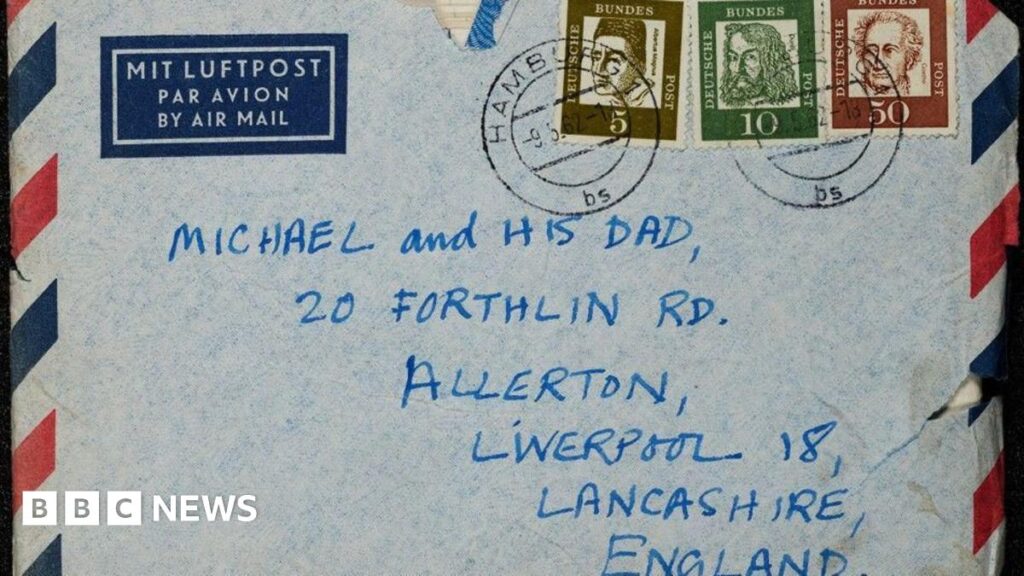 MIT LUFTPOST
PAR AVION
BY AIR MAIL
DEUTSCHE
BUNDES
POST
5
DEUTSCHE
BUNDES
POST
10
DEUTSCHE
BUNDES
POST
50
HAMBURG 1
bs
bs
MICHAEL and HIS DAD,
20 FORTHLIN RD.
ALLERTON,
LIWERPOOL 18,
LANCASHIRE,
ENGLAND.
BBC NEWS